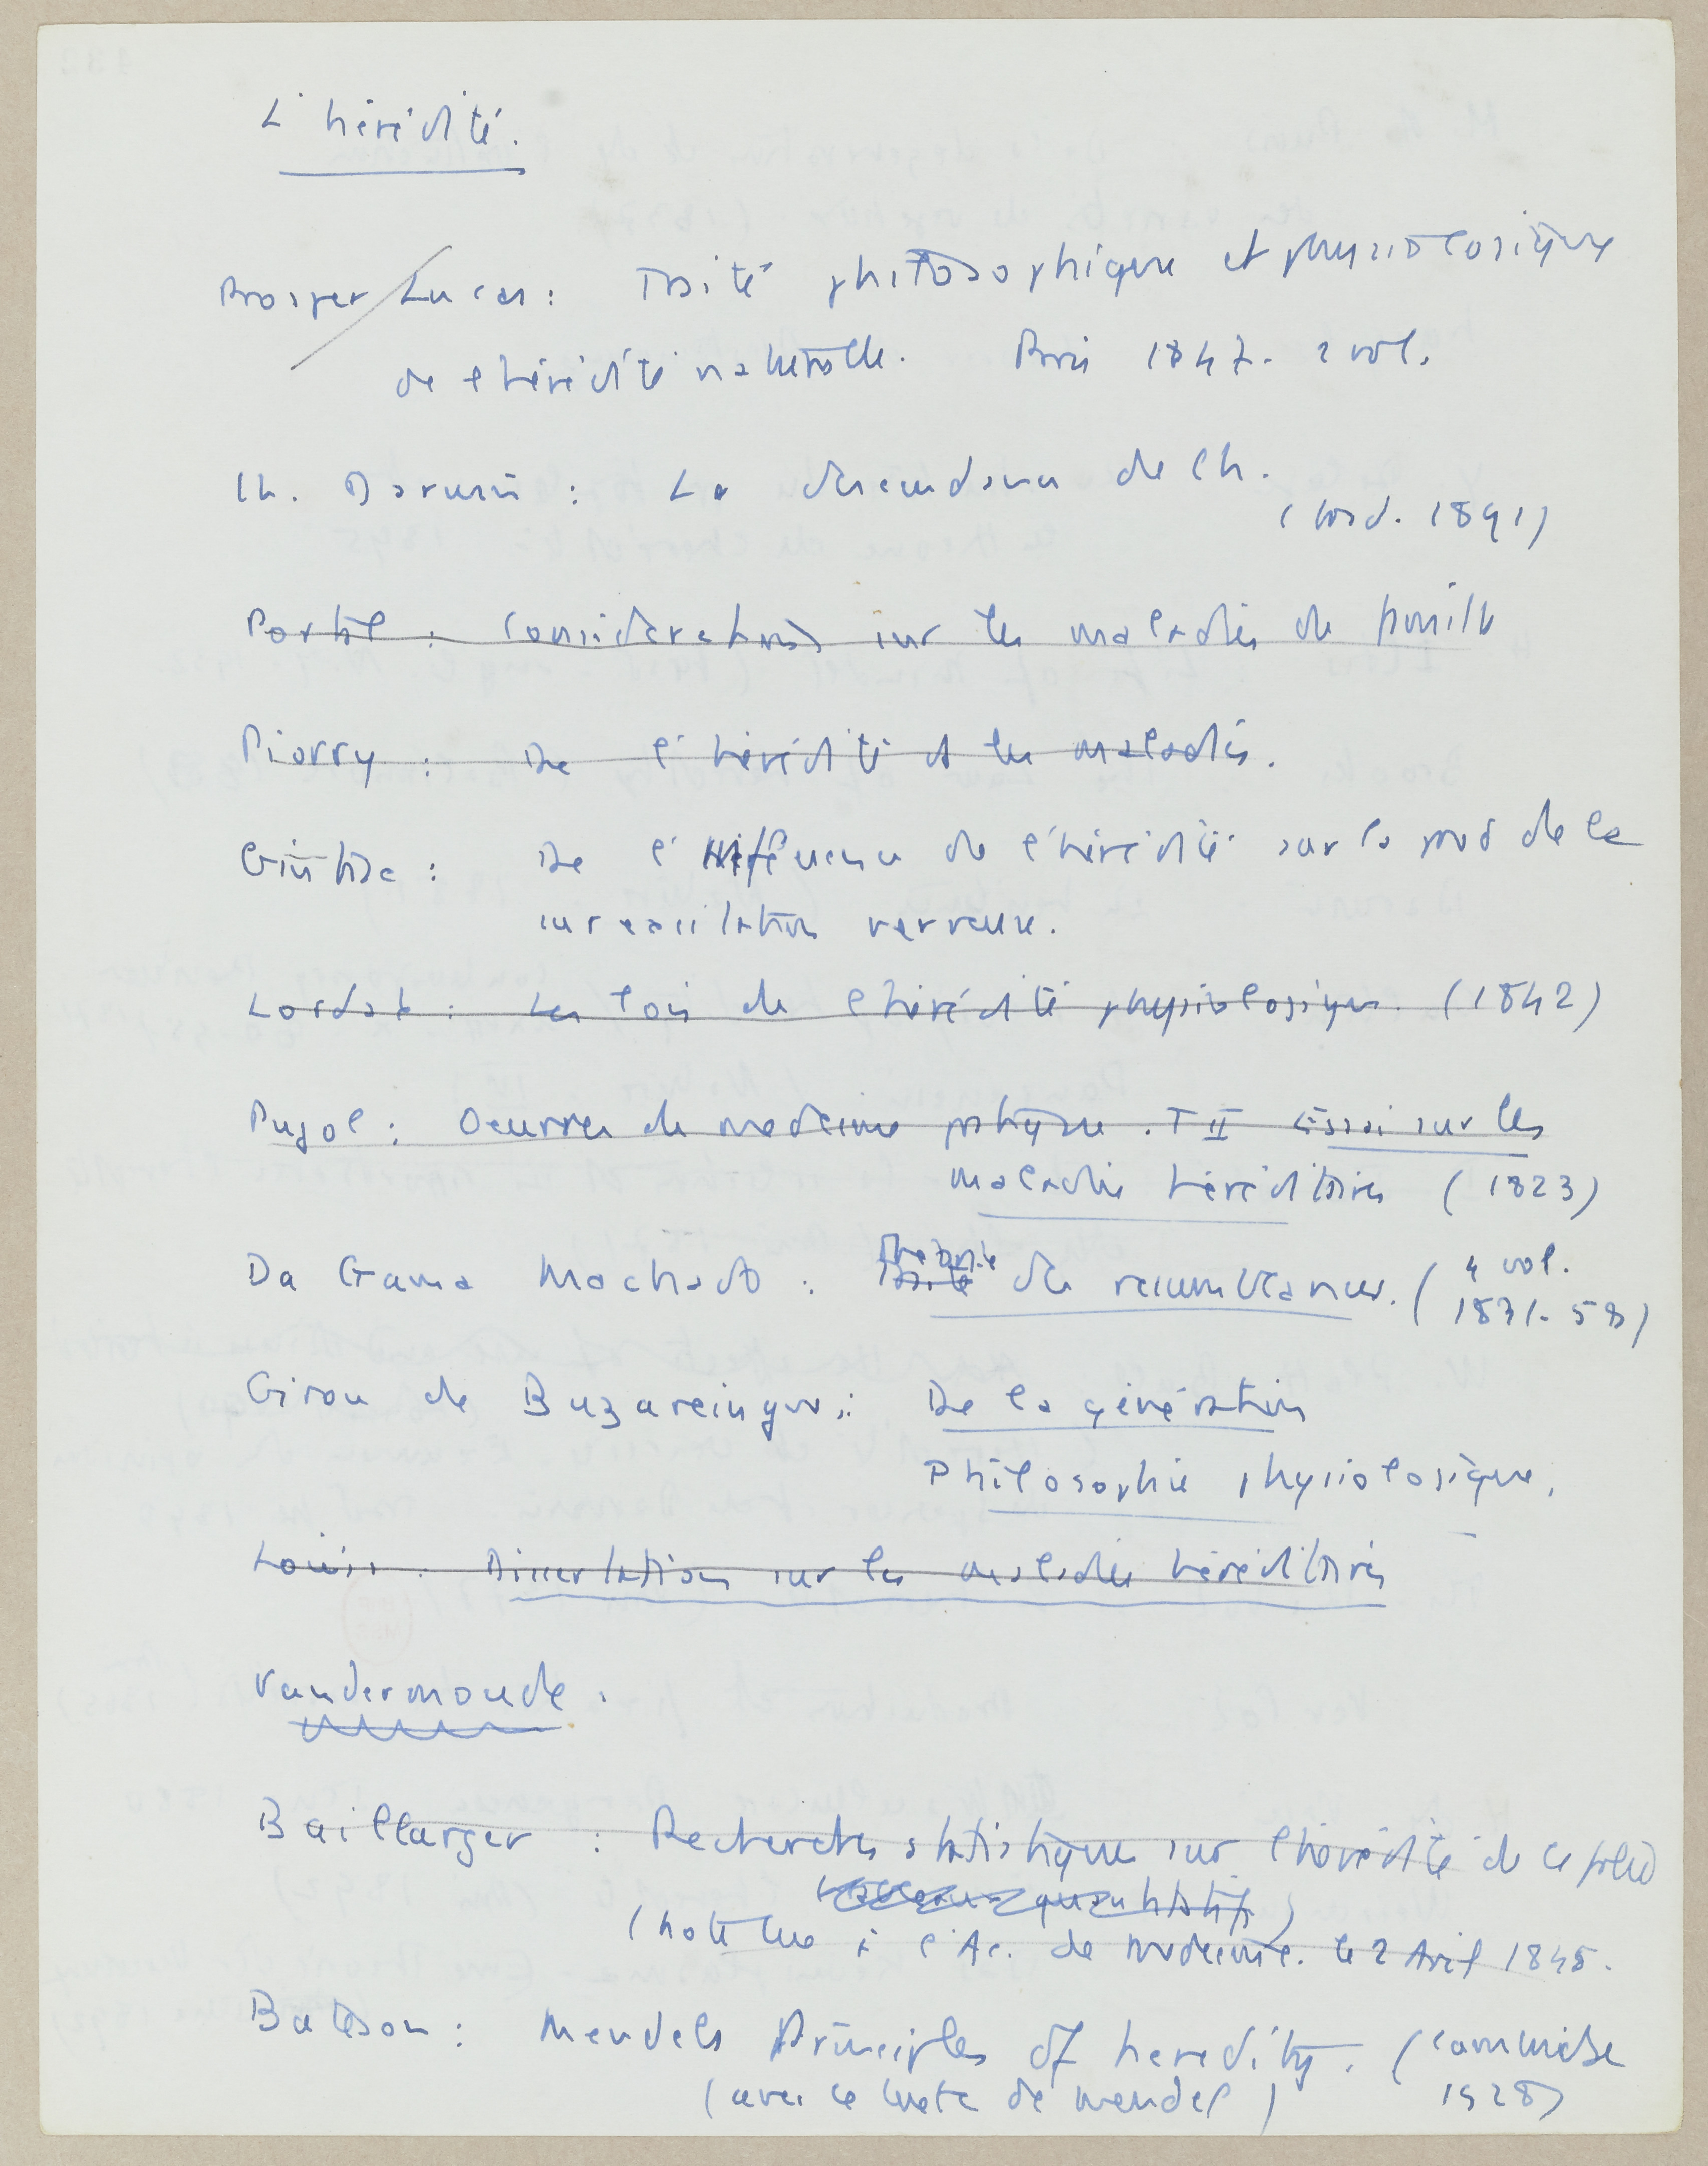 L'hérédité.
Prosper Lucas : Traité philosophique et physiologique
de l'hérédité naturelle. Paris 1847. 2 vol.
Ch. Darwin : La descendance de l'h.
(trad. 1891)
Portal : Considérations sur les maladies de famille
Piorry : De l'hérédité ds les maladies.
Gintrac : De l'influence de l'hérédité sur la prod de la
surexcitation nerveuse.
Lordat : Les lois de l'hérédité physiologique. (1842)
Pujol : Oeuvres de médecine pratique. T II Essai sur les
maladies héréditaires (1823)
Da Gama Machado : Théorie des ressemblances. (4 vol.
1831-58)
Girou de Buzareingues : De la génération
Philosophie physiologique.
Louis : Dissertation sur les maladies héréditaires
Vandermonde.
Baillarger : Recherches statistiques sur l'hérédité de la folie
(note lue à l'Ac. de médecine. le 2 Avril 1845.
Bateson : Mendels Principles of heredity. (Cambridge
(avec le texte de Mendel) 1928)